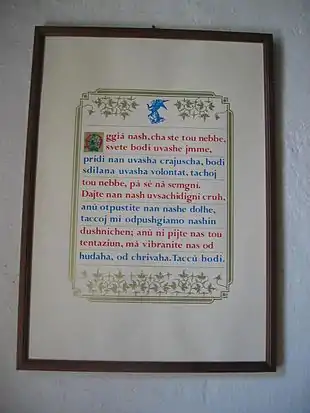 Oggiá nash, cha ste tou nebbe,
svete bodi uvashe jmme,
pridi nan uvasha crajuscha, bodi
sdilana uvasha volontat, tachoj
tou nebbe, pá sé ná semgni.
Dajte nan nash uvsachidigni cruh,
anú otpustite nan nashe dolhe,
taccoj mi odpushgiamo nashin
dushnichen; anú ni pijte nas tou
tentaziun, má vibranite nas od
hudaha, od chrivaha. Taccú bodi.